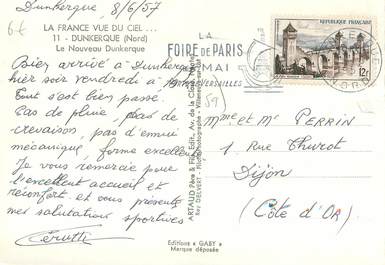 Dunkerque, 8/6/57
6€
LA FRANCE VUE DU CIEL ...
11 - DUNKERQUE (Nord)
Le Nouveau Dunkerque
Bien arrivé à Dunkerque
hier soir vendredi à
Tout s'est bien passé.
Pas de pluie, pas de
crevaison, pas d'ennui
mécanique, forme excellente
Je vous remercie pour
l'excellent accueil et
réconfort et vous présente
mes salutations sportives
Cerutti
ARTAUD Père & Fils, Édit., Av. de la Close, Nantes
Ray DELVERT - Photographe - Villeneuve-sur-Lot
LA
FOIRE DE PARIS
MAI
VERSAILLES
REPUBLIQUE FRANÇAISE
12F
NORD
59
Mme et Mr PERRIN
1 Rue Thurot
Dijon
(Côte d'Or)
Editions « GABY »
Marque déposée